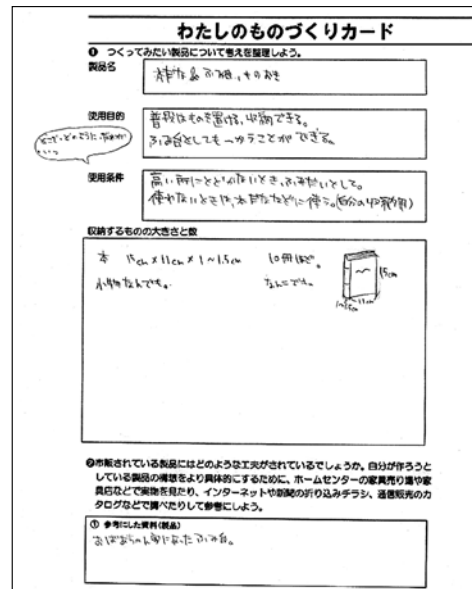 わたしのものづくりカード
❶ つくってみたい製品について考えを整理しよう。
製品名
本だな& ふみ台、ものおき
使用目的
普段はものを置ける、収納できる。
ふみ台としてもつかうことができる。
どこで、どのように、だれが
いつ
使用条件
高い所にとどかないとき、ふみだいとして。
使わないときは、本だななどに使う。(自分の収納)
収納するものの大きさと数
本 15cm×11cm×1~1.5cm 10冊ほど。
小物なんでも。 なんこでも。
15cm
11cm
1~1.5cm
❷市販されている製品にはどのような工夫がされているでしょうか。自分が作ろうと
している製品の構想をより具体的にするために、ホームセンターの家具売り場や家
具店などで実物を見たり、インターネットや新聞の折り込みチラシ、通信販売のカ
タログなどで調べたりして参考にしよう。
① 参考にした資料(製品)
おばあちゃん家にあったふみ台。